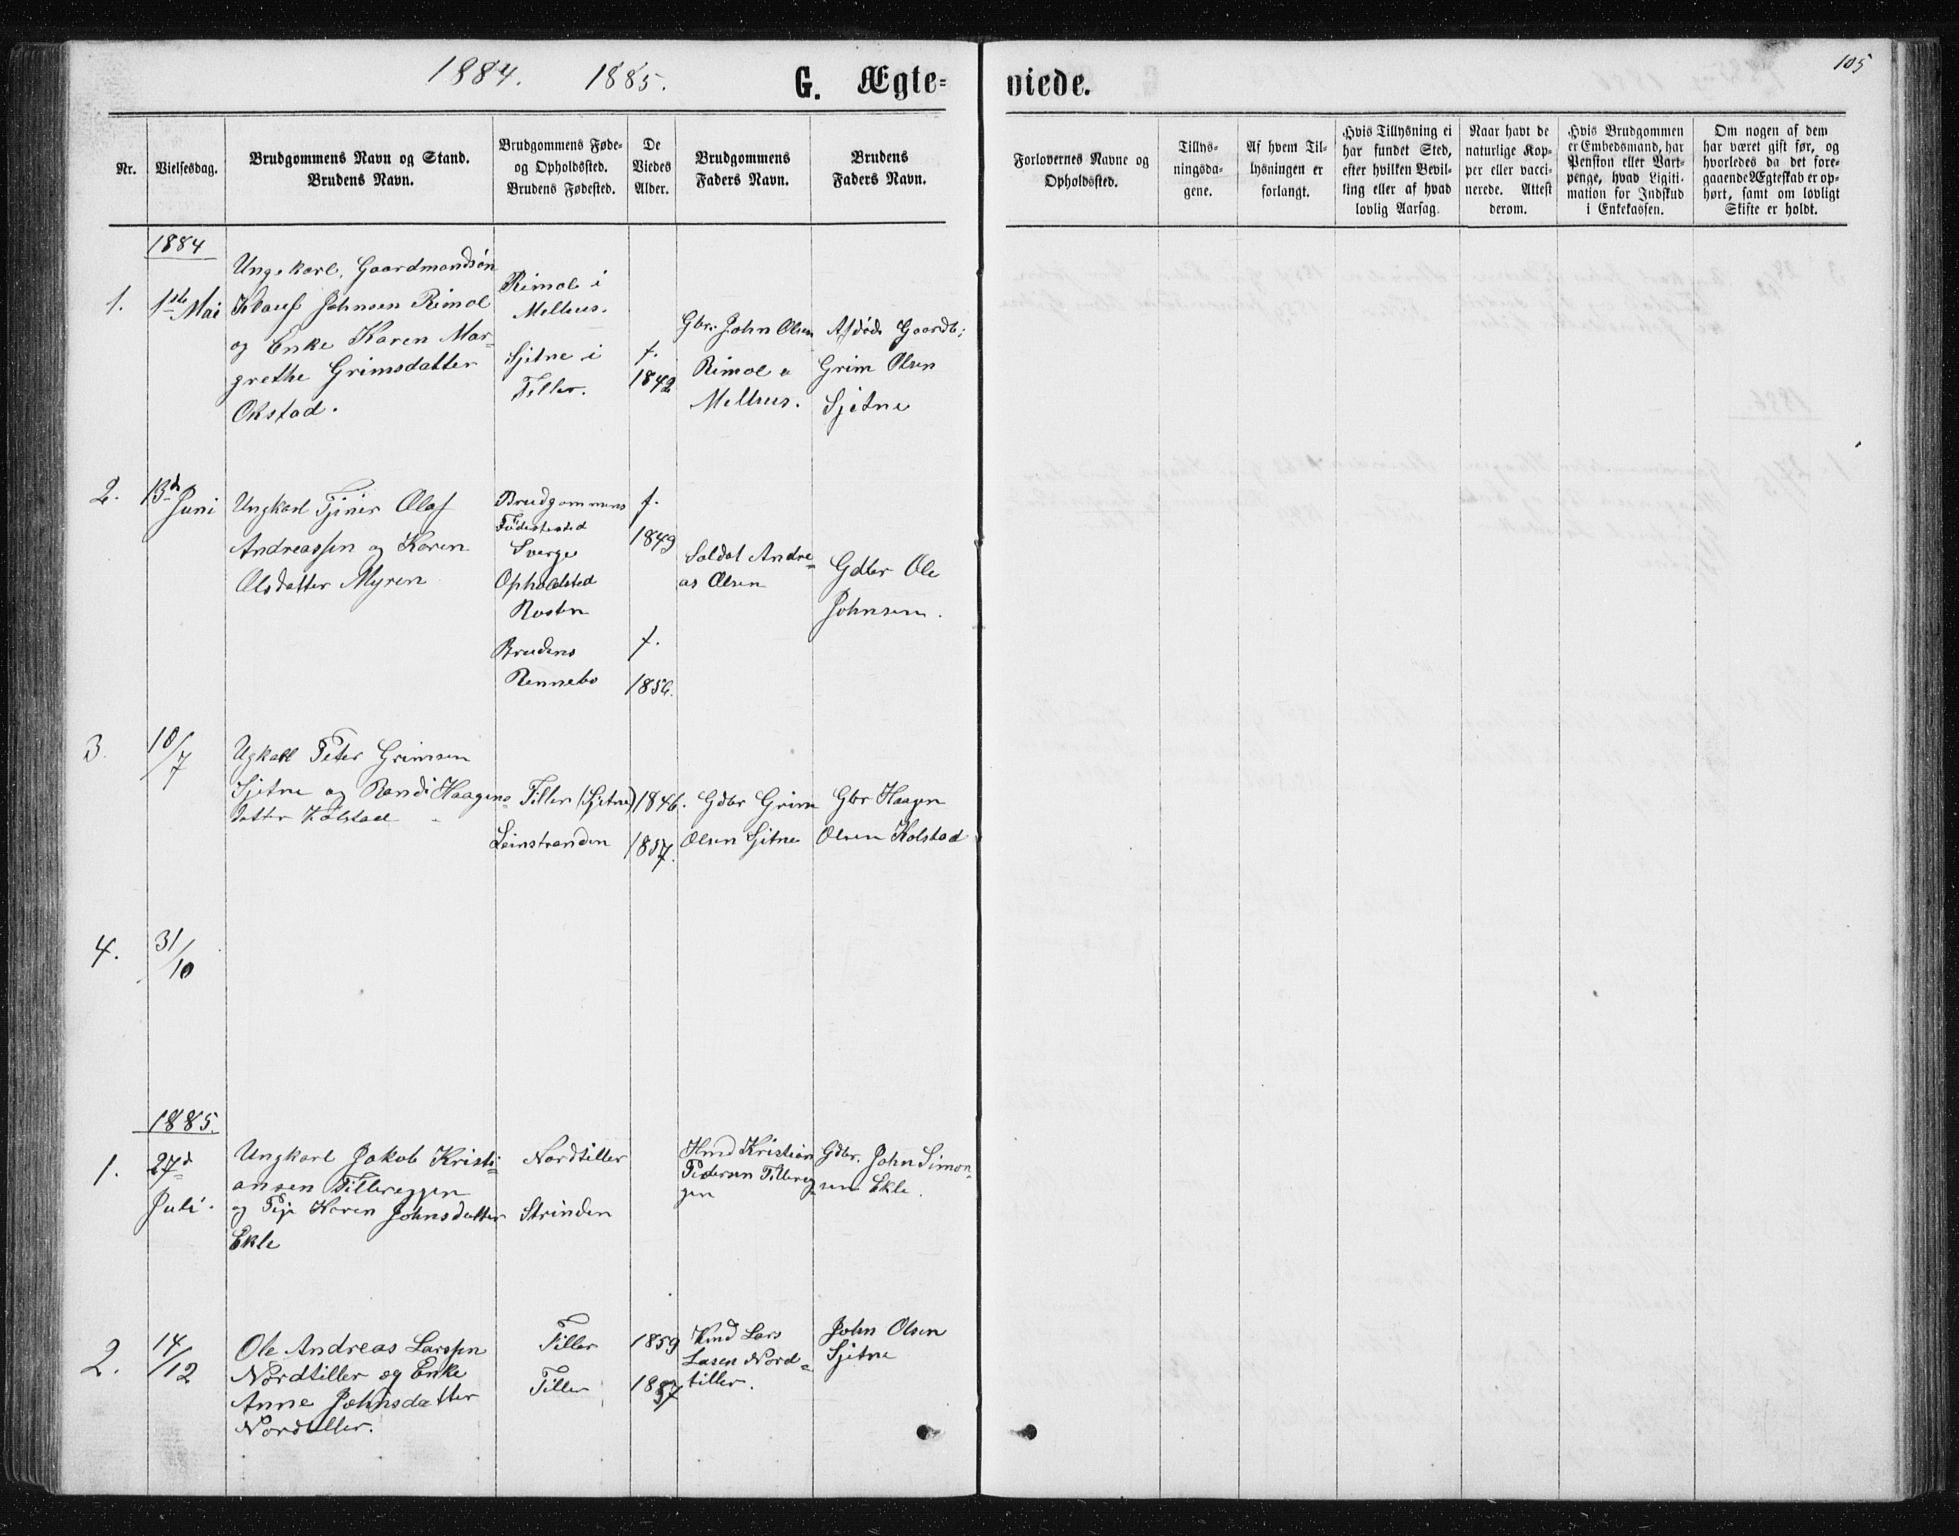 1884. 1885. G. Ægte-
viede.
105
Nr.
Vielsesdag.
Brudgommens Navn og Stand.
Brudens Navn.
Brudgommens Føde-
og Opholdssted.
Brudens Fødested.
De
Viedes
Alder.
Brudgommens
Faders Navn.
Brudens
Faders Navn.
Forlovernes Navne og
Opholdssted.
Tillys-
ningsda-
gene.
Af hvem Til-
lysningen er
forlangt.
Hvis Tillysning ei
har fundet Sted,
efter hvilken Bevil-
ling eller af hvad
lovlig Aarsag.
Naar havt de
naturlige Kop-
per eller vacci-
nerede. Attest
derom.
Hvis Brudgommen
er Embedsmand, har
Pension eller Vart-
penge, hvad Ligiti-
mation for Indskud
i Enkekassen.
Om nogen af dem
har været gift før, og
hvorledes da det fore-
gaaende Ægteskab er op-
hørt, samt om lovligt
Skifte er holdt.
1884
1.
1ste Mai
Ungekarl, Gaardmandsøn
Johnsen Rimol
og Enke Karen Mar-
grethe Grimsdatter
Okstad.
Rimol i
Melhus.
Sjetne i
Tiller.
f.
1842
Gbr. John Olsen
Rimol i
Melhus.
Afdøde Gaardb;
Grim Olsen
Sjetne
2.
13de
Juni
Ungkarl Tjener Olaf
Andreassen og Karen
Olsdatter Myren
Brudgommens
Fødestested
Sverge
Opholdsted
Rosten
Brudens
Rennebo
f.
1849
f.
1856.
Soldat Andre-
as Olsen
Gdbr Ole
Johnsen.
3.
10/7
Ugkarl Peter Grimsen
Sjetne og Randi Haagens-
datter Kolstad
Tiller (Sjetne)
Leinstranden
1846.
1857.
Gdbr Grim
Olsen Sjetne
Gbr Haagen
Olsen Kolstad
4.
31/10
1885.
1.
27de
Juli.
Ungkarl Jakob Kristi-
ansen Tillereggen
og Pige Karen Johnsdatter
Ekle
Nordtiller
Strinden
Hmd Kristian
Pedersen Tillereg
gen
Gdbr. John Simon-
sen Ekle.
2.
14/12
Ole Andreas Larssen
Nordtiller og Enke
Anne Johnsdatter
Nordtiller.
Tiller
Tiller
1859
1857
Lars
Lasen Nord-
tiller.
John Olsen
Sjetne